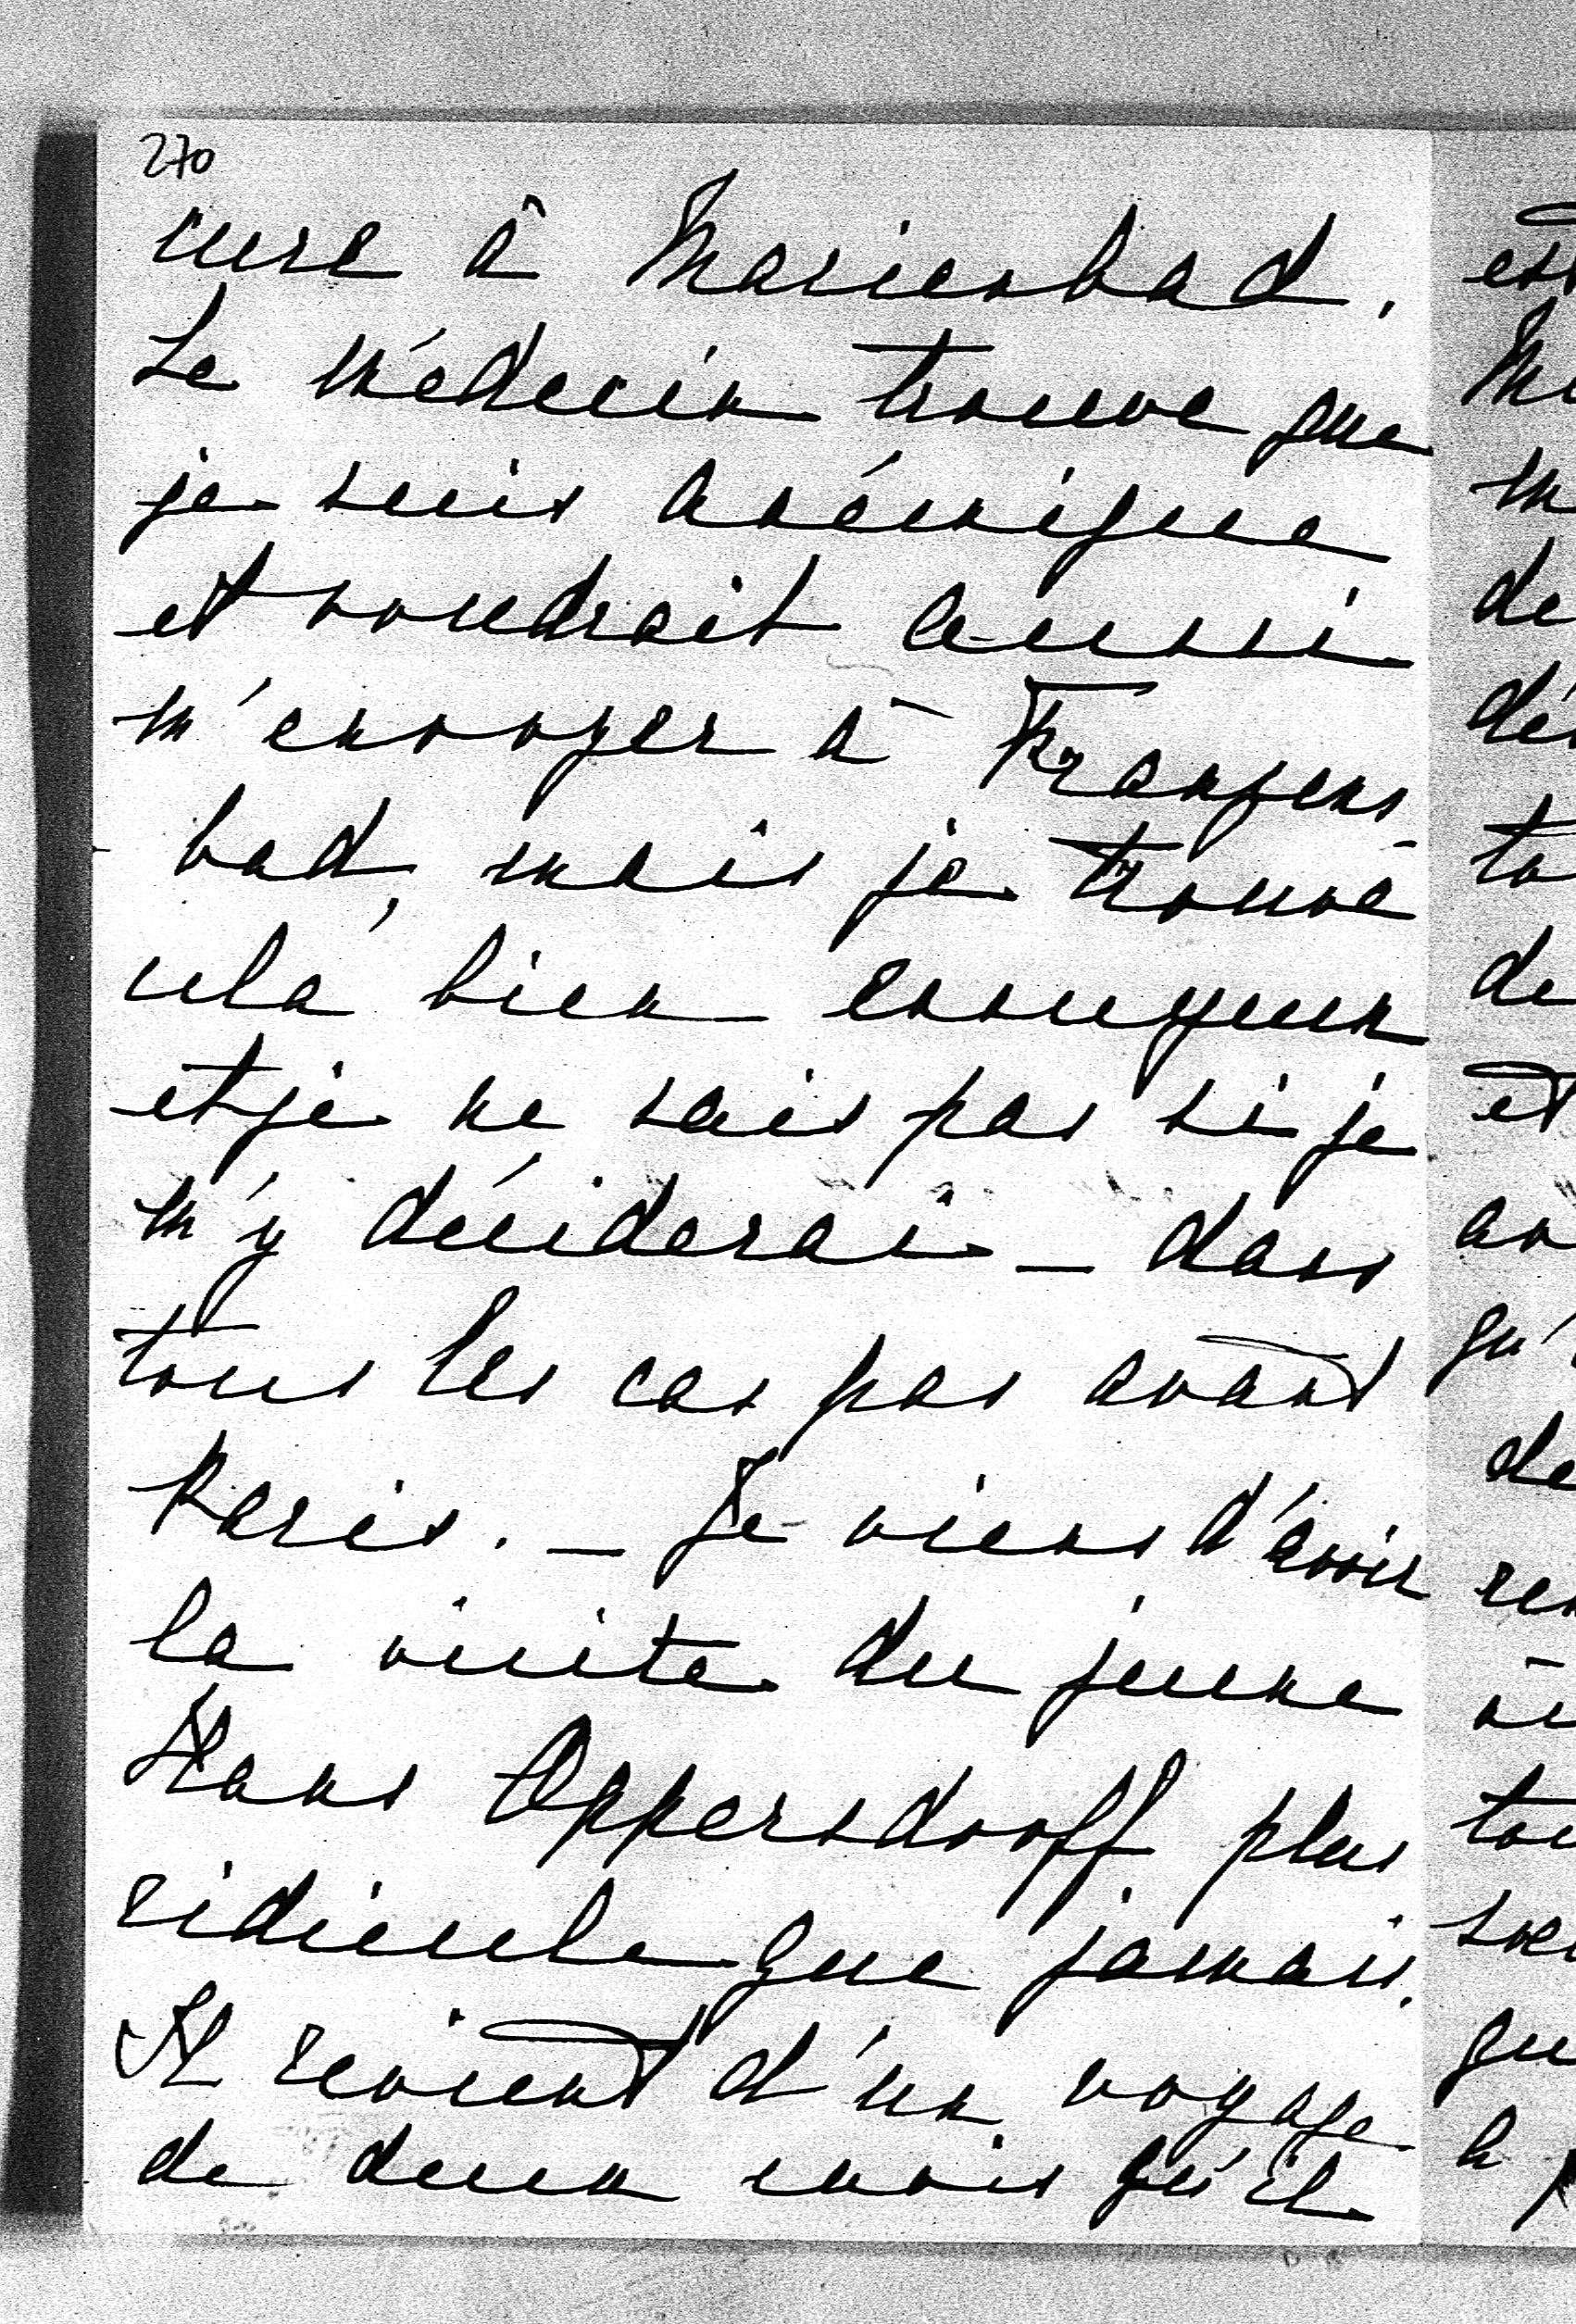 270
cure à Marienbad.
Le médecin trouve que
je suis anémique
et voudrait aussi
m'envoyer à Franzens
bad, mais je trouve
cela bien ennuyeux
et je ne sais pas si je
m'y déciderai – dans
tous les cas pas avant
Paris. – Je viens d'avoir
la visite du jeune
Hans Oppersdorff plus
ridicule que jamais.
Il revient d'un voyage
de deux mois qu'il